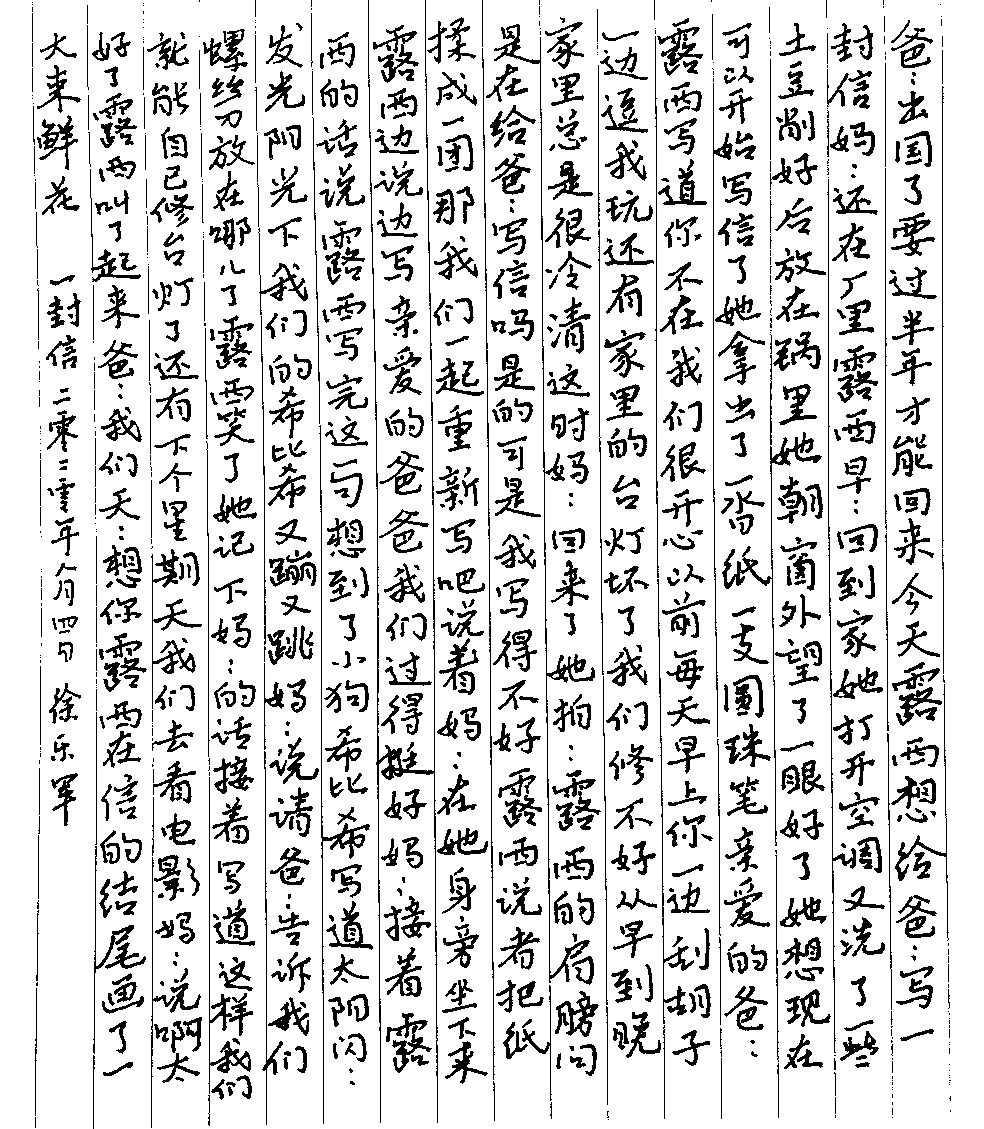 爸：出国了要过半年才能回来今天露西想给爸：写一
封信妈：还在厂里露西早：回到家她打开空调又洗了一些
土豆削好后放在锅里她朝窗外望了一眼好了她想现在
可以开始写信了她拿出了一沓纸一支圆珠笔亲爱的爸：
露西写道你不在我们很开心以前每天早上你一边刮胡子
一边逗我玩还有家里的台灯坏了我们修不好从早到晚
家里总是很冷清这时妈：回来了她拍：露西的肩膀问
是在给爸：写信吗是的可是我写得不好露西说着把纸
揉成一团那我们一起重新写吧说着妈：在她身旁坐下来
露西边说边写亲爱的爸爸我们过得挺好妈：接着露
西的话说露西写完这一句想到了小狗希比希写道太阳闪：
发光阳光下我们的希比希又蹦又跳妈：说请爸：告诉我们
螺丝刀放在哪儿了露西笑了她记下妈：的话接着写道这样我们
就能自己修台灯了还有下个星期天我们去看电影妈：说啊太
好了露西叫了起来爸：我们天：想你露西在信的结尾画了一
大束鲜花 一封信 二零二零年八月四日 徐乐军